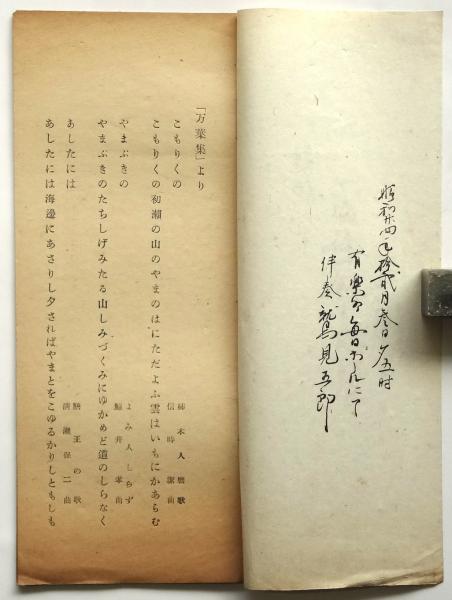 昭和廿四年拾弐月参日夕五時
有楽町毎日ホールにて
伴奏 鷲見五郎
「万葉集」より
こもりくの
柿本人麿歌
信時潔曲
こもりくの初瀬の山のやまのはにただよふ雲はいもにかあらむ
やまぶきの
よみ人しらず
曲
やまぶきのたちしげみたる山しみづくみにゆかめど道のしらなく
あしたには
王の歌
瀬保二曲
あしたには海邊にあさりし夕さればやまとをこゆるかりしともしも